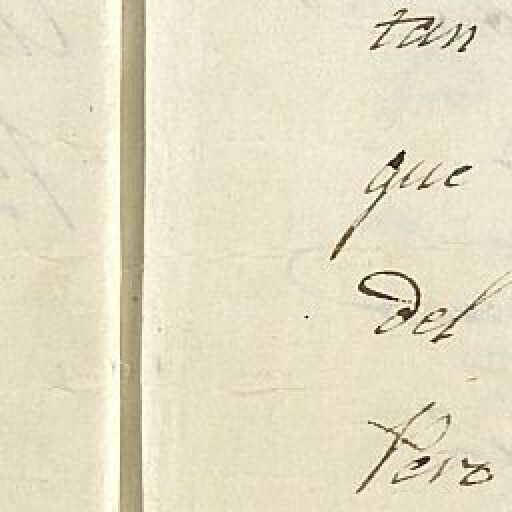 tan
que
del
Pero